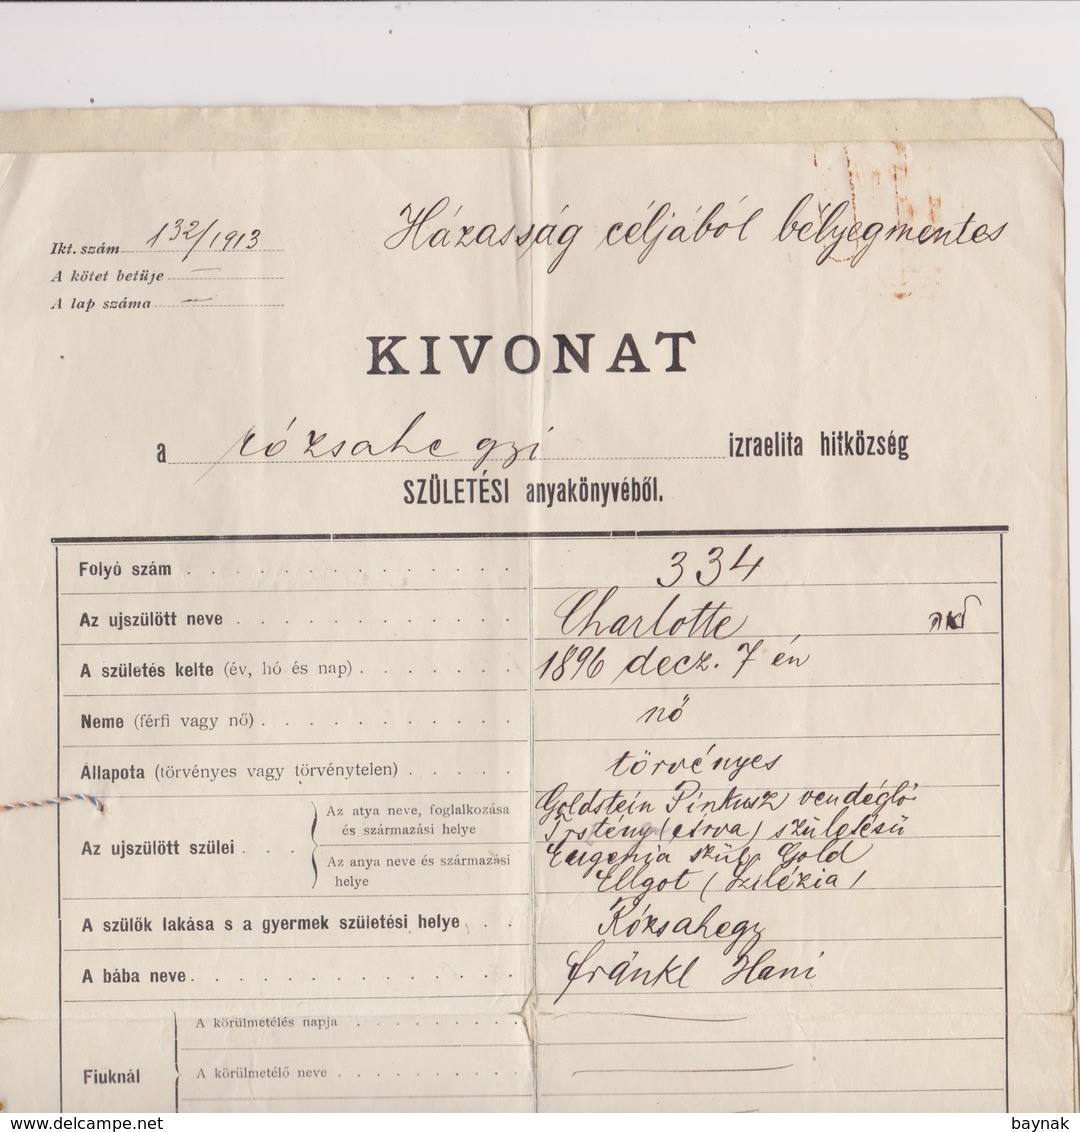 Házasság céljából bélyegmentes
Ikt. szám 132/1913
A kötet betüje —
A lap száma —
KIVONAT
a rózsahegyi izraelita hitközség
SZÜLETÉSI anyakönyvéből.
Folyó szám . . . 334
Az ujszülött neve . . . Charlotte
A születés kelte (év, hó és nap) . . . 1896 decz. 7 én
Neme (férfi vagy nő) . . . nő
Állapota (törvényes vagy törvénytelen) . . . törvényes
Az ujszülött szülei . . .
Az atya neve, foglalkozása és származási helye
Goldstein Pinkusz vendéglő
Trstény (Árva) születésü
Az anya neve és származási helye
Eugenia szül. Gold
Ellgot (Szilézia)
A szülők lakása s a gyermek születési helye . . . Rózsahegy
A bába neve . . . Fränkl Hani
Fiuknál
A körülmetélés napja . . . —
A körülmetélő neve . . . —
delcampe.net
baynak